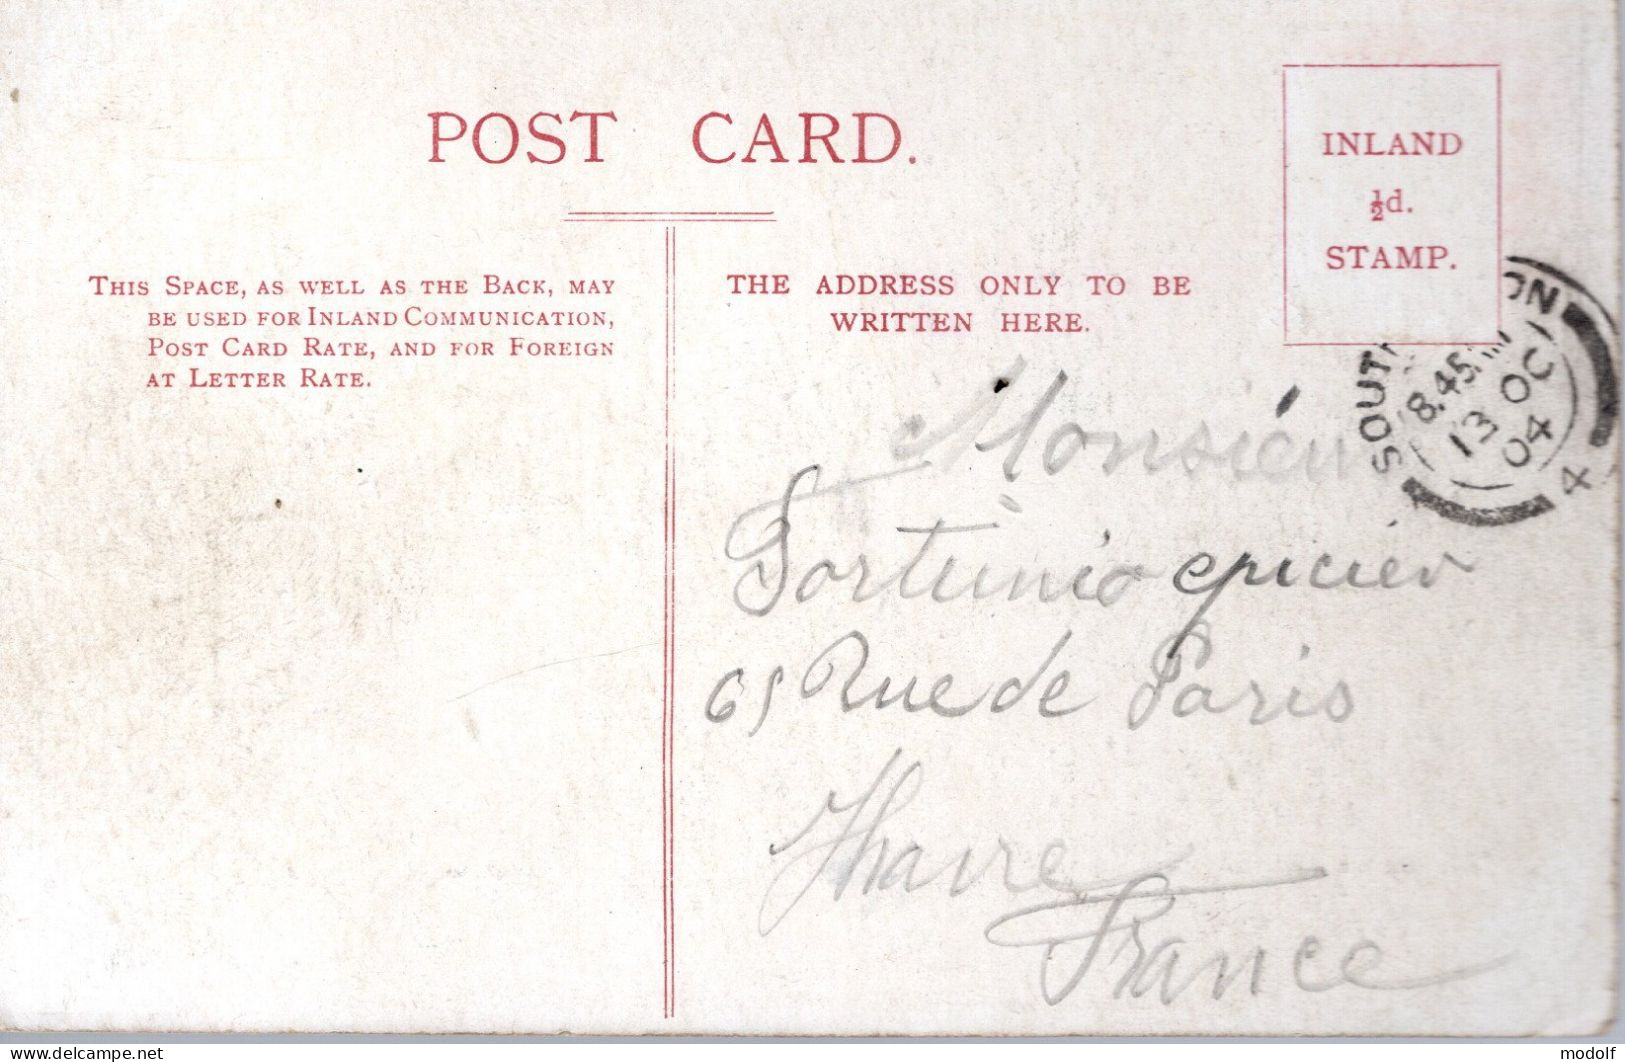 POST CARD.
INLAND
½d.
STAMP.
THIS SPACE, AS WELL AS THE BACK, MAY
BE USED FOR INLAND COMMUNICATION,
POST CARD RATE, AND FOR FOREIGN
AT LETTER RATE.
THE ADDRESS ONLY TO BE
WRITTEN HERE.
8.45
13 OC
04
4
Monsieur
Fortunio epicier
65 Rue de Paris
Havre
France
delcampe.net
modolf